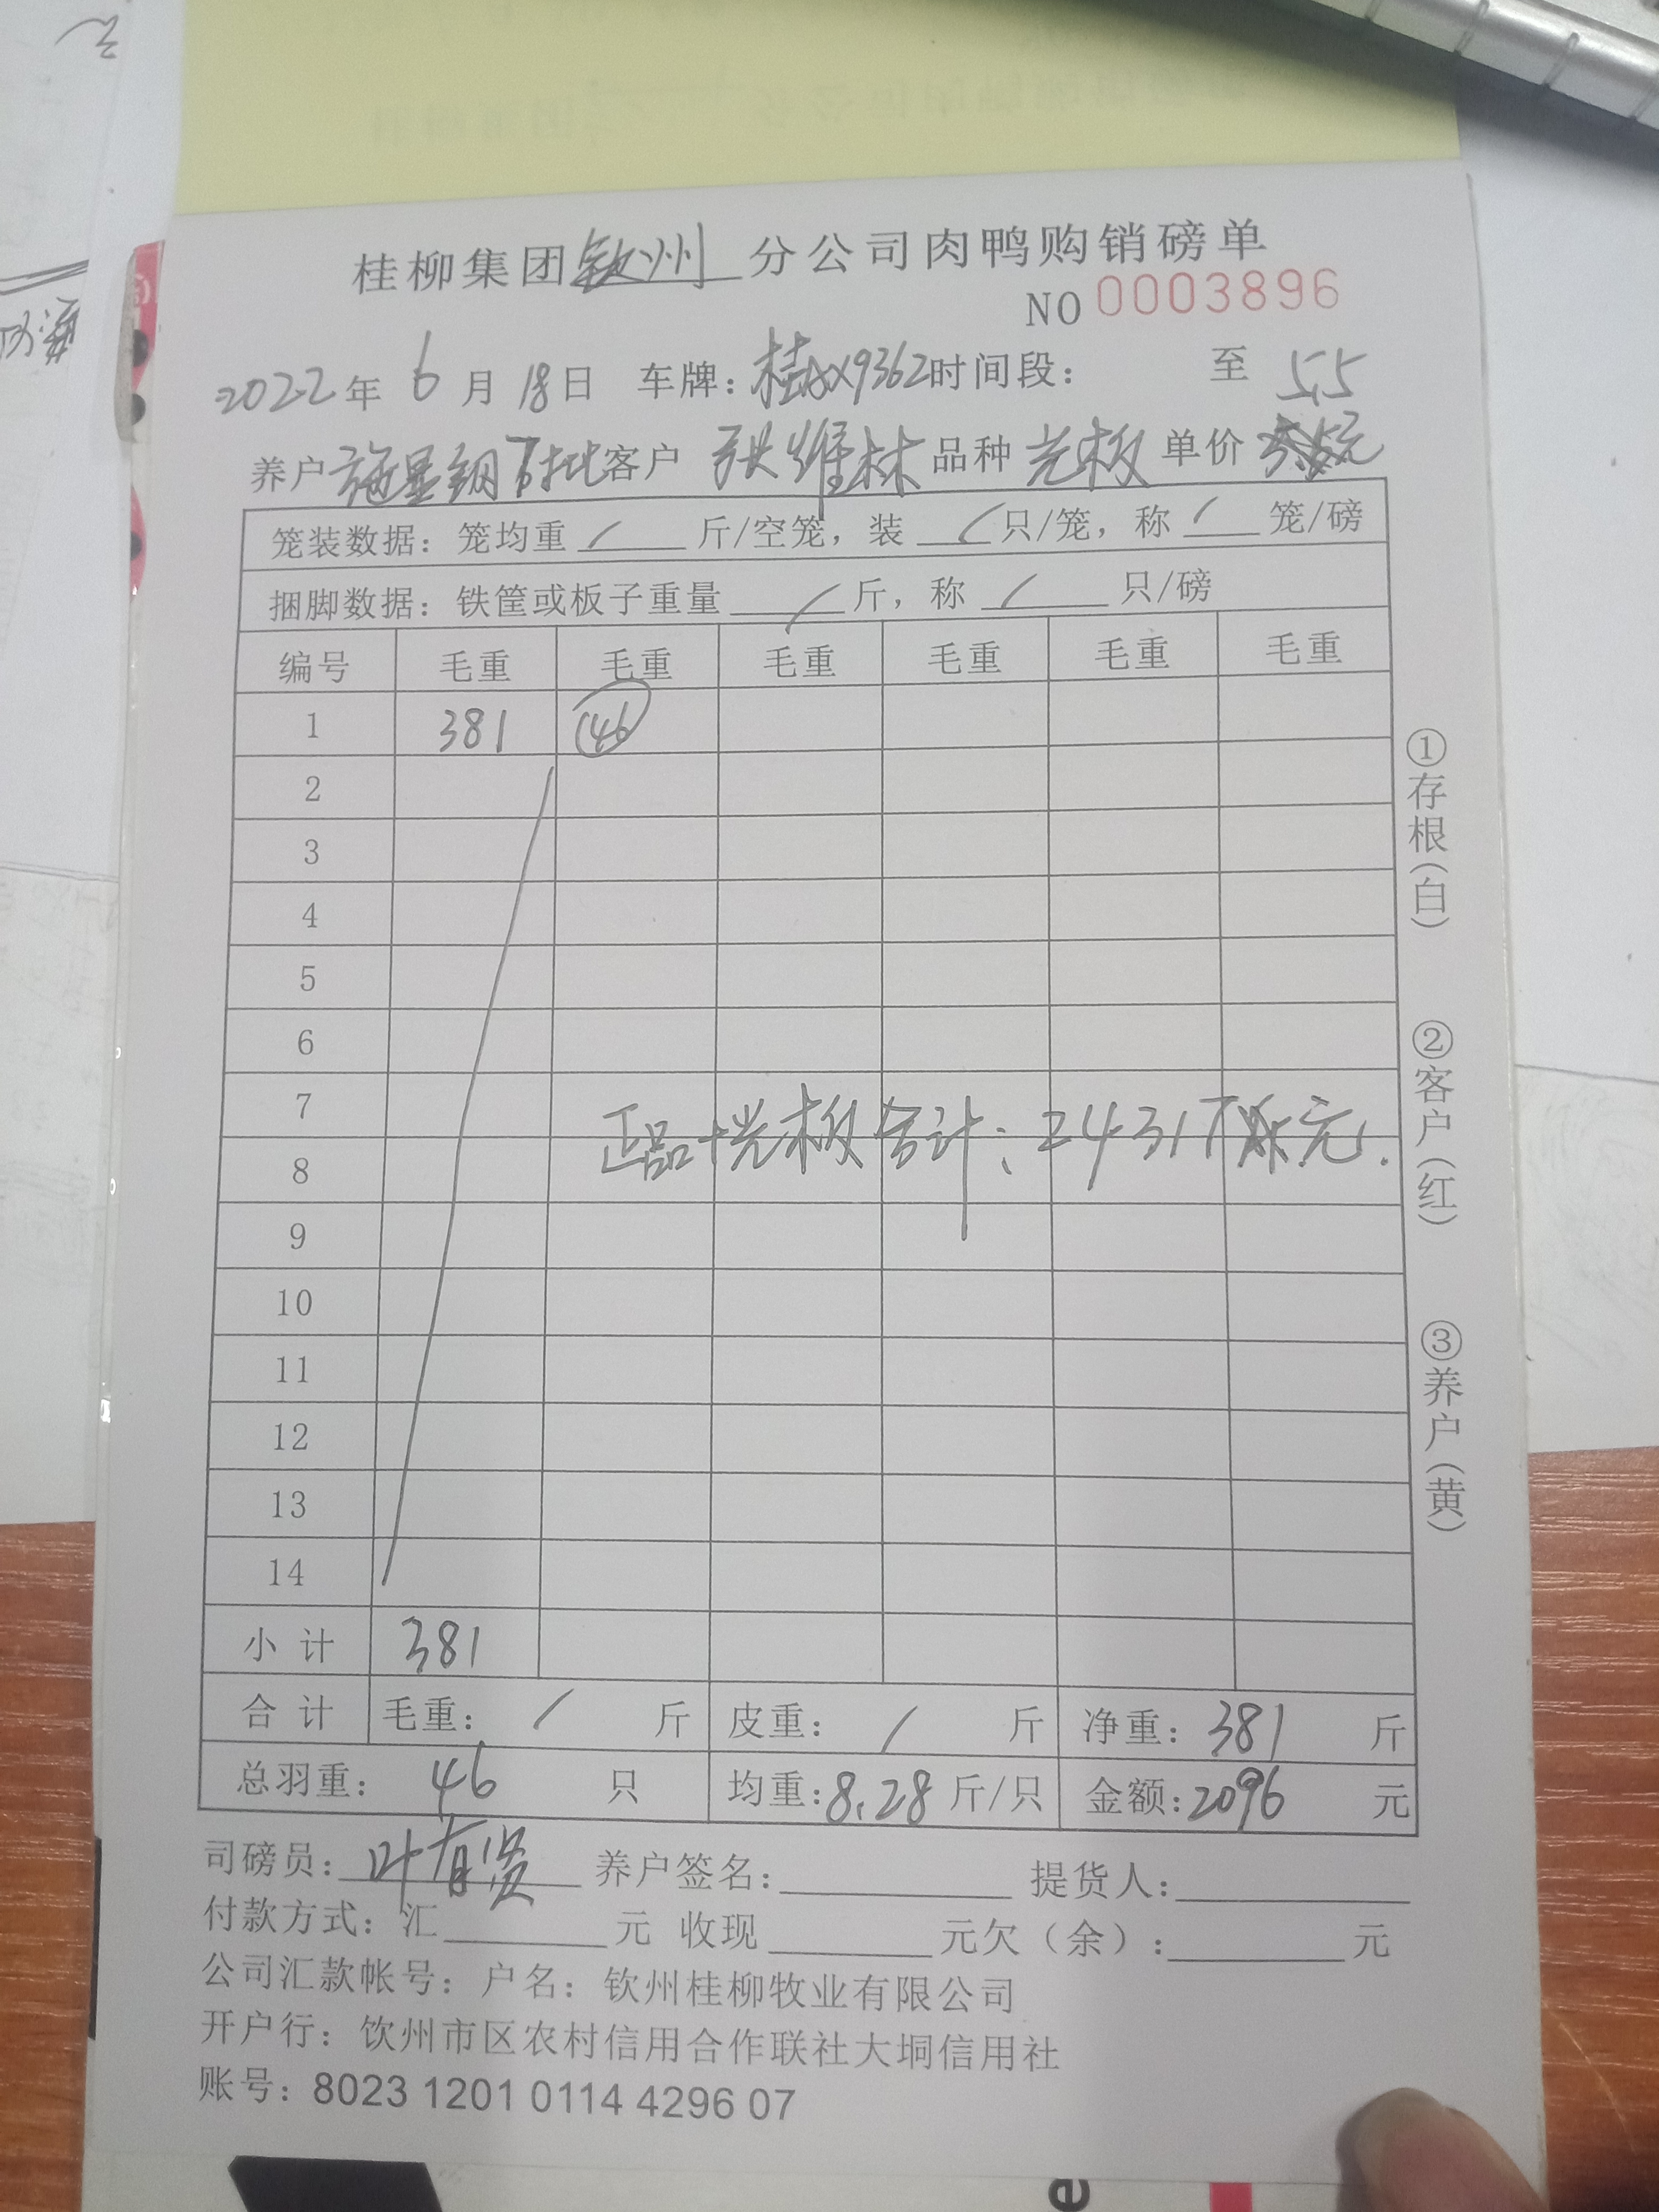 桂柳集团钦州分公司肉鸭购销磅单
NO 0003896
2022年6月18日 车牌:桂 9362时间段: 至 5.5
养户施显钢 客户 张维林 品种 光板 单价 元
笼装数据:笼均重 / 斤/空笼,装 / 只/笼,称 / 笼/磅
捆脚数据:铁筐或板子重量 / 斤,称 / 只/磅
编号 毛重 毛重 毛重 毛重 毛重 毛重
1 381 46
2
3
4
5
6
7
8
正品+光板合计:24317 元.
9
10
11
12
13
14
小计 381
合计 毛重: / 斤 皮重: / 斤 净重:381 斤
总羽重: 46 只 均重:8.28 斤/只 金额:2096 元
司磅员:叶有贤 养户签名: 提货人:
付款方式:汇 元 收现 元欠(余): 元
公司汇款帐号:户名:钦州桂柳牧业有限公司
开户行:钦州市区农村信用合作联社大垌信用社
账号:8023 1201 0114 4296 07
①存根(白)
②客户(红)
③养户(黄)